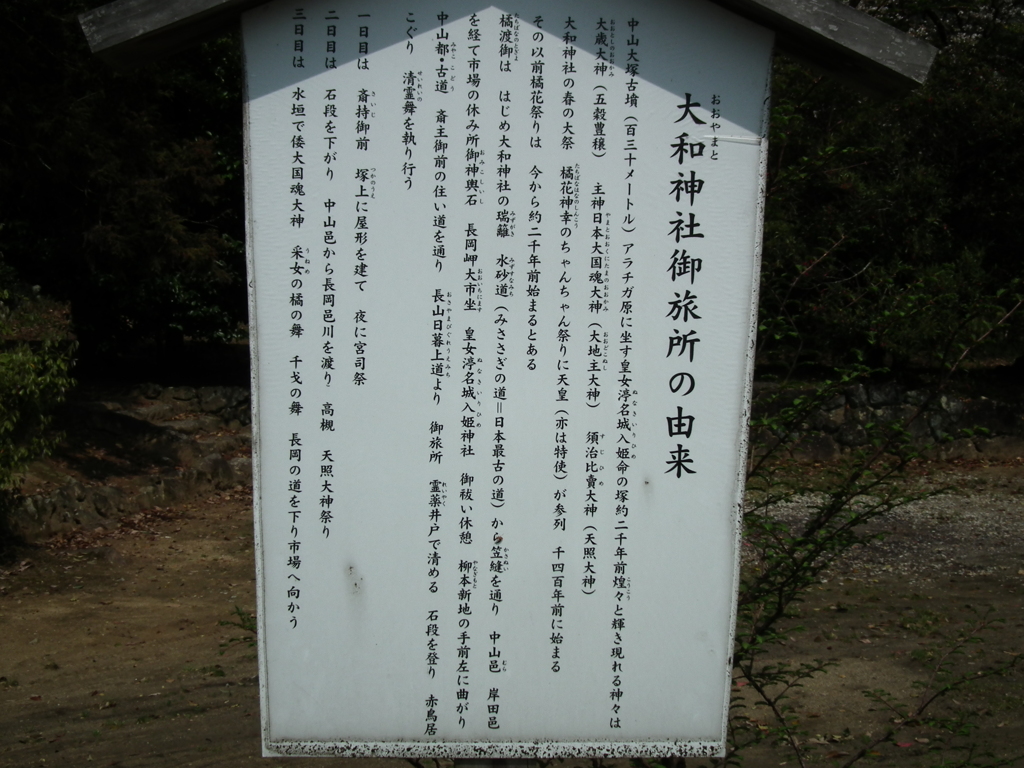 大和神社御旅所の由来
中山大塚古墳(百三十メートル)アラチガ原に坐す皇女渟名城入姫命の塚約二千年前煌々と輝き現れる神々は
大歳大神(五穀豊穣) 主神日本大国魂大神(大地主大神) 須治比賣大神(天照大神)
大和神社の春の大祭 橘花神幸のちゃんちゃん祭りに天皇(亦は特使)が参列 千四百年前に始まる
その以前橘花祭りは 今から約二千年前始まるとある
橘渡御は はじめ大和神社の瑞籬 水砂道(みささぎの道=日本最古の道)から笠縫を通り 中山邑 岸田邑
を経て市場の休み所御神輿石 長岡岬大市坐 皇女渟名城入姫神社 御祓い休憩 柳本新地の手前左に曲がり
中山都・古道 斎主御前の住い道を通り 長山日暮上道より 御旅所 霊薬井戸で清める 石段を登り 赤鳥居
こぐり 清霊舞を執り行う
一日目は 斎持御前 塚上に屋形を建て 夜に宮司祭
二日目は 石段を下がり 中山邑から長岡邑川を渡り 高槻 天照大神祭り
三日目は 水垣で倭大国魂大神 采女の橘の舞 千戈の舞 長岡の道を下り市場へ向かう